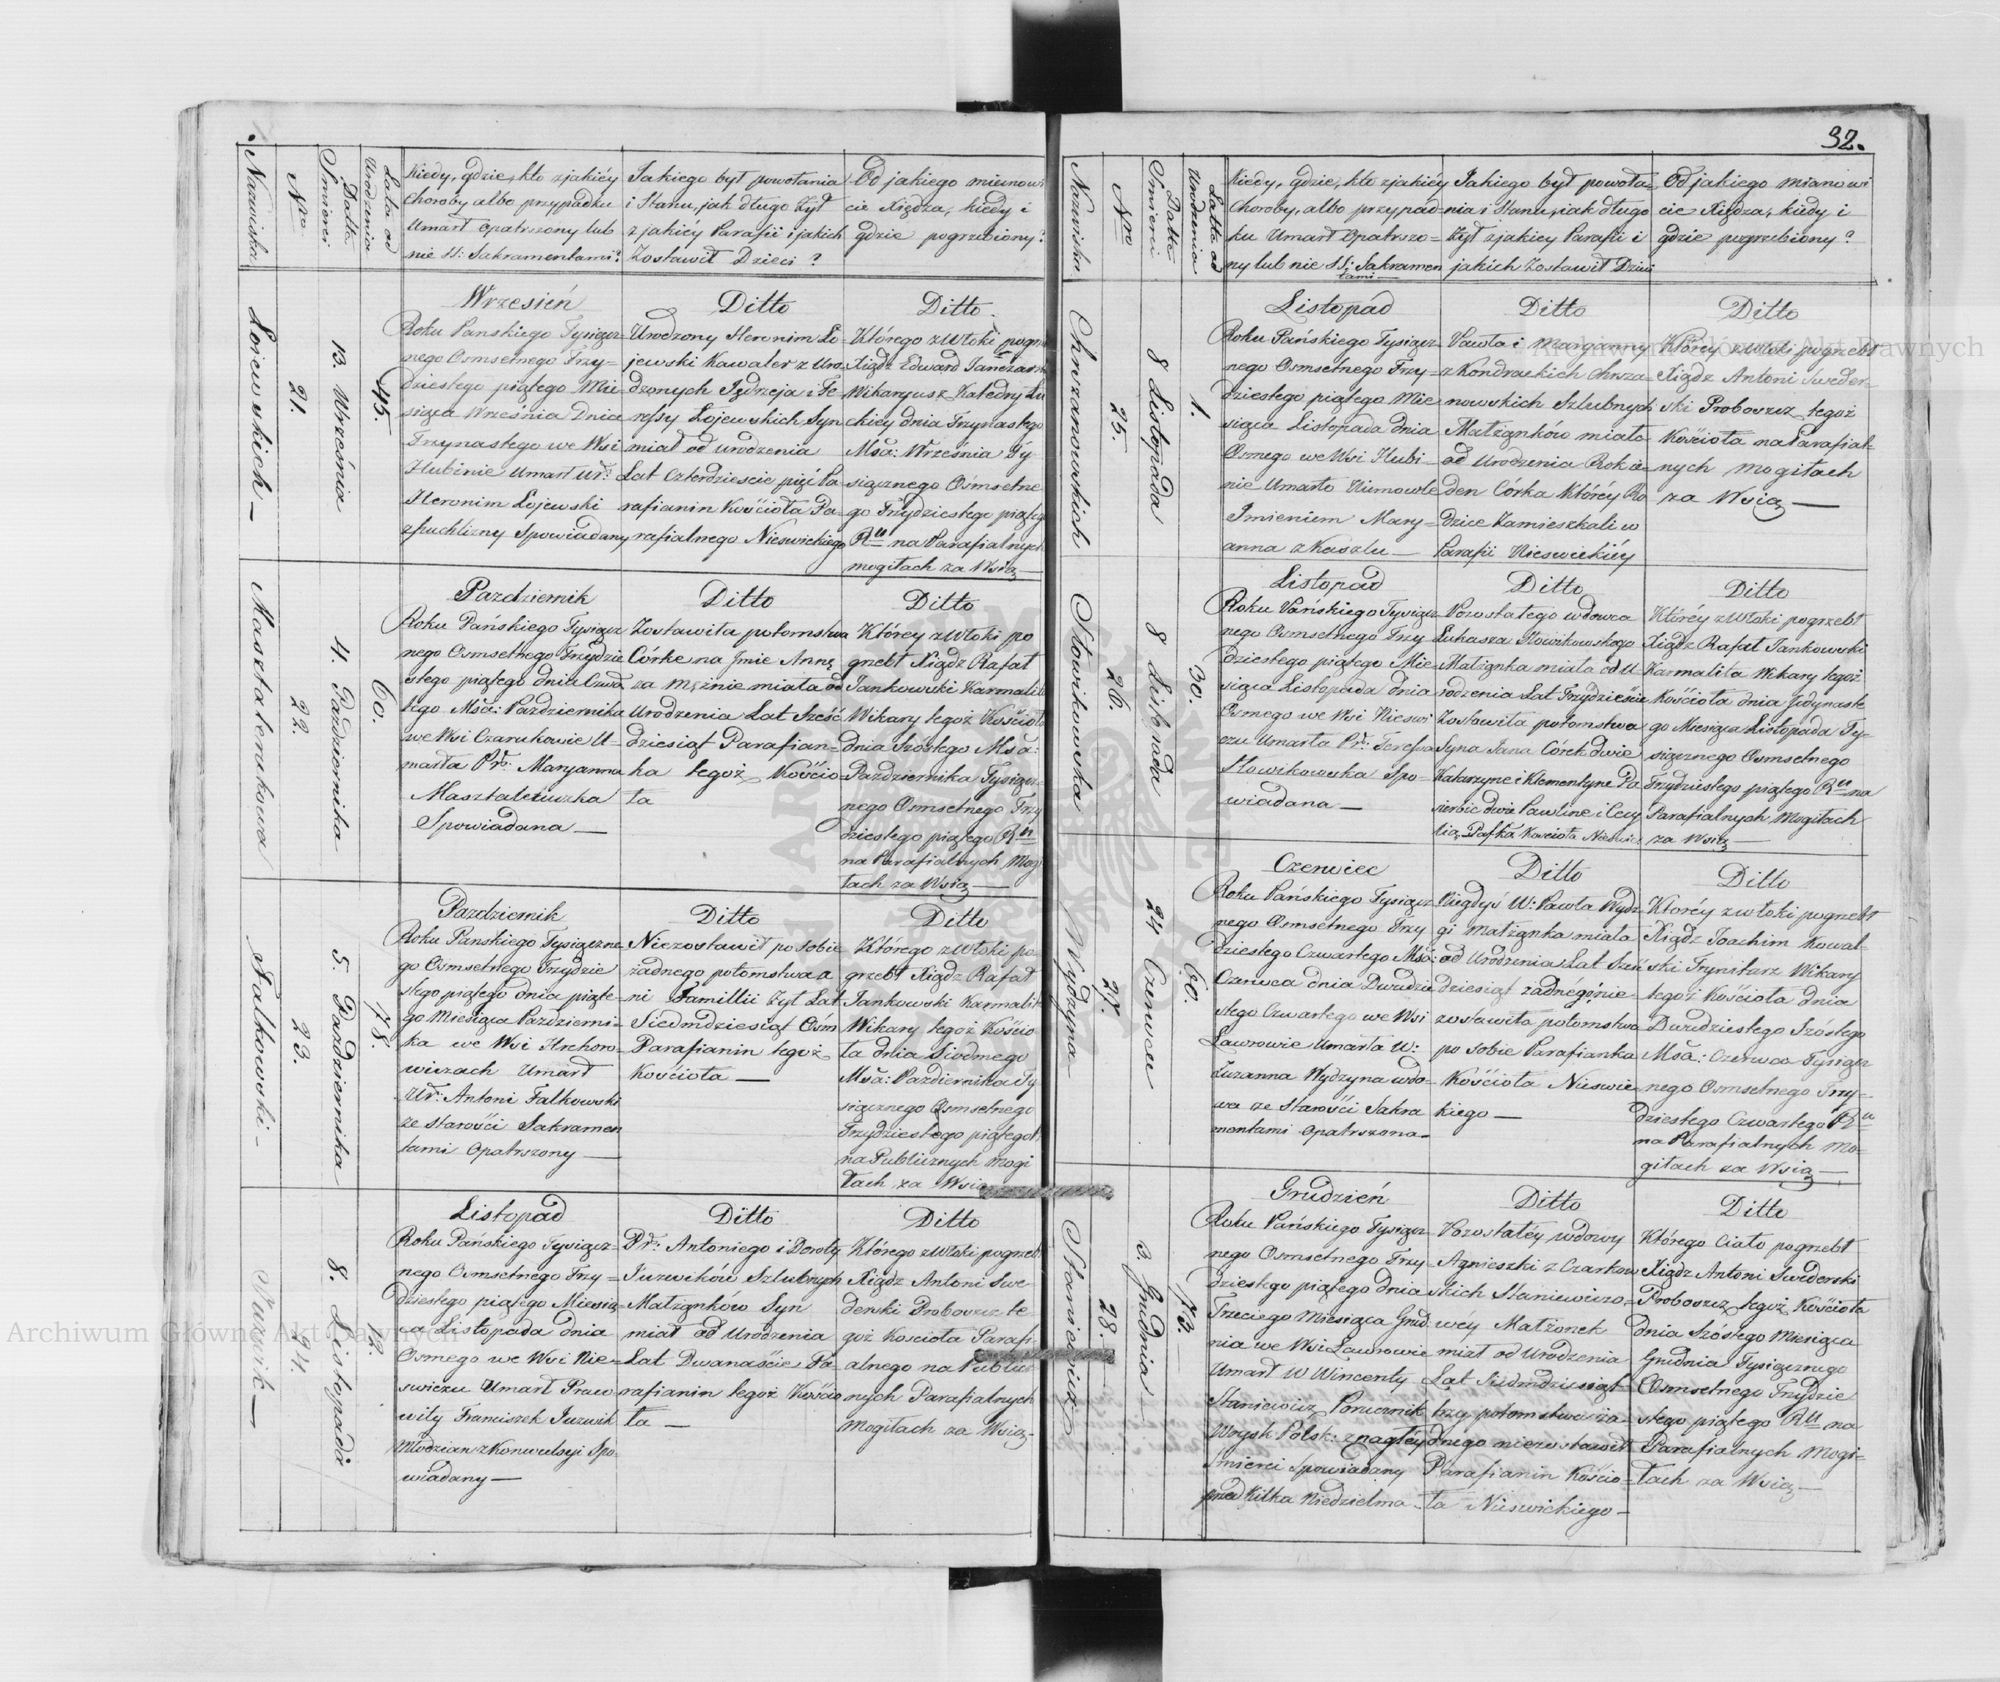 Nazwiska
Nro
Datta Śmierci
Lata od Urodzenia
Kiedy, gdzie, kto z jakiéy
Choroby albo przypadku
Umarł opatrzony lub
nie SS: Sakramentami?
Jakiego był powołania
i Stanu, jak długo żył
z jakiéy Parafii i jakich
Zostawił Dzieci?
Od jakiego mianowi
cie Xiędza, kiedy i
gdzie pogrzebiony?
Łoiewskich —
21.
13. Września
45.
Wrzesień
Roku Panskiego Tysiącz-
nego Osmsetnego Trzy-
dziestego piątego Mie-
siąca Września Dnia
Trzynastego we Wsi
Hubinie Umarł Ur:
Heronim Łojewski
z puchlizny Spowiadany
Ditto
Urodzony Heronim Ło-
jewski Kawaler z Uro-
dzonych Jędrzeja i Te-
ressy Łojewskich, Syn
miał od urodzenia
Lat Czterdzieście pięć Pa-
rafianin Kościoła Pa-
rafialnego Nieswickiego
Ditto
Którego zwłoki pogrze
Xiądz Edward
Wikaryusz Katedry Łu
ckiey dnia Trzynastego
Mśa: Września Ty-
siącznego Osmsetne
go Trzydziestego piąteg
Ru na Parafialnych
mogiłach za Wsią —
Masztalerukowa
22.
4. Pazdziernika
60.
Pazdziernik
Roku Pańskiego Tysiącz
nego Osmsetnego Trzydzie
stego piątego dnia Czwa
tego Mśa: Pazdziernika
we Wsi Czarukowie U-
marła Pr: Maryanna
Masztaleruczka
Spowiadana —
Ditto
Zostawiła potomstwa
Córke na Jmie Annę
za mężnie miała od
Urodzenia Lat Sześć
dziesiąt Parafian-
ka tegoż Kościo-
ła
Ditto
Którey zwłoki po
grzebł Xiądz Rafał
Jankowski Karmalit
Wikary tegoż Kościoł
dnia Szóstego Mśa:
Pazdziernika Tysiącz-
nego Osmsetnego Trzy
dziestego piątego Ru
na Parafialnych Mogi
łach za Wsią —
Falkowski —
23.
5. Pazdziernika
78.
Pazdziernik
Roku Panskiego Tysiączne
go Osmsetnego Trzydzie
stego piątego dnia piąte-
go Miesiąca Pazdzierni-
ka we Wsi Hrehoro-
wiczach Umarł
Ur: Antoni Falkowski
ze starośći Sakramen
tami Opatrzony —
Ditto
Niezostawił po sobie
żadnego potomstwa a
ni Familii żył Lat
Siedmdziesiąt Ośm
Parafianin tegoż
Kościoła —
Ditto
Którego zwłoki po
grzebł Xiądz Rafał
Jankowski Karmalit
Wikary tegoż Kościo
ła dnia Siodmego
Mśa: Pazdziernika Ty
siącznego Osmsetnego
Trzydziestego piątego
na Publicznych mogi
łach za Wsią
Juzwik —
24.
8. Listopada
12.
Listopad
Roku Pańskiego Tysiącz-
nego Osmsetnego Trzy-
dziestego piątego Miesią-
ca Listopada dnia
Osmego we Wsi Nie-
swiczu Umarł Praw-
wity Franciszek Juzwik
Młodzian z Konwulsyi Spo-
wiadany —
Ditto
Pr: Antoniego i Doroty
Juzwików Szlubnych
Matżąnków Syn
miał od Urodzenia
Lat Dwanaście Pa-
rafianin tegoż Kościo
ła —
Ditto
Którego zwłoki pogrzeb
Xiądz Antoni Swe-
derski Proboszcz te-
goż Kościoła Parafi-
alnego na Publicz
nych Parafialnych
Mogiłach za Wsią —
32.
Nazwiska
Nro
Datta Smierci
Latta od Urodzenia
Kiedy, gdzie, kto z jakiéy
Choroby, albo przypad-
ku Umarł Opatrzo-
ny lub nie SS: Sakramen
tami —
Jakiego był powoła-
nia i Stanu, jak długo
Żył z jakiey Parafii i
jakich Zostawił Dzieci
Od jakiego mianowi
cie Xiędza, kiedy i
gdzie pogrzebiony?
Chrzanowskich
25.
8 Listopada
1.
Listopad
Roku Pańskiego Tysiącz-
nego Osmsetnego Trzy-
dziestego piątego Mie-
siąca Listopada dnia
Osmego we Wsi Hubi-
nie Umarło Niemowle
Imieniem Mary-
anna z Kaszlu —
Ditto
Pawła i Maryanny
z Kondrackich Chrza-
nowskich Szlubnych
Matżąnków miała
od Urodzenia Rok ie-
den Córka Któréy Ro-
dzice Zamieszkali w
Parafii Nieswickiéy
Ditto
Któréy zwłoki pogrzebł
Xiądz Antoni Sweder-
ski Proboszcz tegoż
Kościoła na Parafial-
nych mogiłach
za Wsią —
Słowikowska
26.
8 Listopada
30.
Listopad
Roku Pańskiego Tysiącz
nego Osmsetnego Trzy
dziestego piątego Mie
siąca Listopada dnia
Osmego we Wsi Nieswi
czu Umarła Pr: Teressa
Słowikowska Spo-
wiadana —
Ditto
Pozostałego wdowca
Łukasza Słowikowskiego
Matżąnka miała od U
rodzenia Lat Trzydzieście
Zostawiła potomstwa
Syna Jana Córek dwie
Katarzyne i Klementyne Pa
sierbic dwie Pawline i Cecy
lią Pafka Kościoła Nieswic
Ditto
Któréy zwłoki pogrzebł
Xiądz Rafał Jankowski
Karmalita Wikary tegoż
Kościoła dnia Jedynaste
go Miesiąca Listopada Ty-
siącznego Osmsetnego
Trzydziestego piątego Ru na
Parafialnych Mogiłach
za Wsią —
Wydzyna
27.
24 Czerwca
60.
Czerwiec
Roku Pańskiego Tysiącz
nego Osmsetnego Trzy
dziestego Czwartego Mśa:
Czerwca dnia Dwudzie
stego Czwartego we Wsi
Ławrowie Umarła W:
Zuzanna Wydzyna wdo-
wa ze starośći Sakra
mentami Opatrzona —
Ditto
Niegdyś W: Pawła Wydz-
gi Matżąnka miała
od Urodzenia Lat Sześć
dziesiąt żadnego nie-
zostawiła potomstwa
po sobie Parafianka
Kościoła Nieswie-
kiego —
Ditto
Któréy zwłoki pogrzebł
Xiądz Joachim Kowal-
ski Trynitarz Wikary
tegoż Kościoła dnia
Dwudziestego Szóstego
Mśa: Czerwca Tysiącz
nego Osmsetnego Trzy-
dziestego Czwartego Ru
na Parafialnych Mo-
giłach za Wsią —
Staniewicz
28.
3. Grudnia
73.
Grudzień
Roku Pańskiego Tysiącz-
nego Osmsetnego Trzy-
dziestego piątego dnia
Trzeciego Miesiąca Grud
nia we Wsi Ławrowie
Umarł W Wincenty
Staniewicz Porucznik
Woysk Polsk: z nagłéy
Śmierci Spowiadany
przed kilka Niedzielma
Ditto
Pozostałéy wdowy
Agnieszki z Czarkow
skich Staniewiczo-
wéy Matżonek
miał od Urodzenia
Lat Siedmdziesiąt
trzy potomstwa ża-
dnego niezostawił
Parafianin Kościo-
ła Nieswickiego —
Ditto
Którego Ciało pogrzebł
Xiądz Antoni Swederski
Proboszcz tegoż Kościoła
dnia Szóstego Miesiąca
Grudnia Tysiącznego
Osmsetnego Trzydzie
stego piątego Ru na
Parafialnych Mogi-
łach za Wsią —
Archiwum Główne Akt Dawnych
Archiwum Główne Akt Dawnych